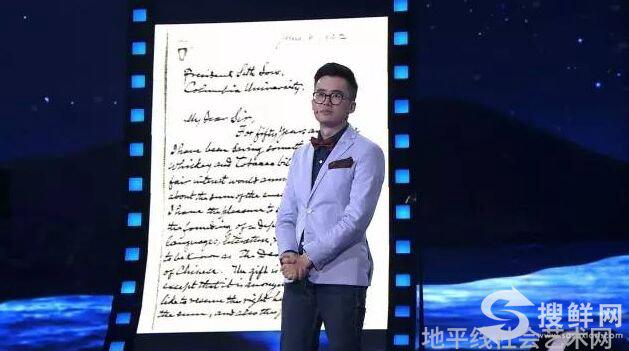 President Seth Low,
Columbia University.
My Dear Sir,
For fifty years
I have been saving something
Whiskey and Tobacco bil
fair interest would
about the sum of the enc
I have the pleasure to
the founding of a dep
Languages, Literature,
to be known as the Dea
of Chinese. The gift is
except that it is anonym
like to reserve the right
the sum, and also thi
搜鲜网
地平线社会艺术网